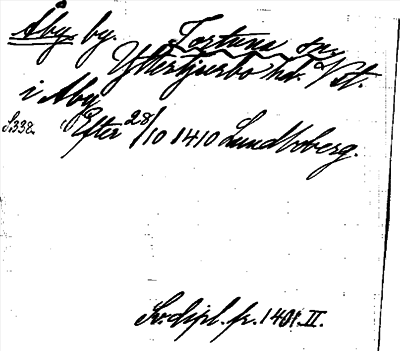 Åby by. Fortuna spr
Ytterkjurbo hd. Vst.
i Aby
S.338. Efter 28/10 1410 Lundboberg.
Sv.dipl.fr.1401.II.